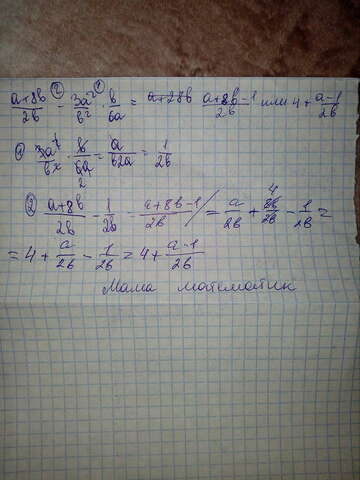 (a+8b)/2b - 3a²/b² · b/6a = (a+8b-1)/2b или 4+(a-1)/2b
① 3a²/b² · b/6a = a/b2a = 1/2b
② (a+8b)/2b - 1/2b = (a+8b-1)/2b / = a/2b + 8b/2b - 1/2b =
= 4 + a/2b - 1/2b = 4 + (a-1)/2b
Мама математик